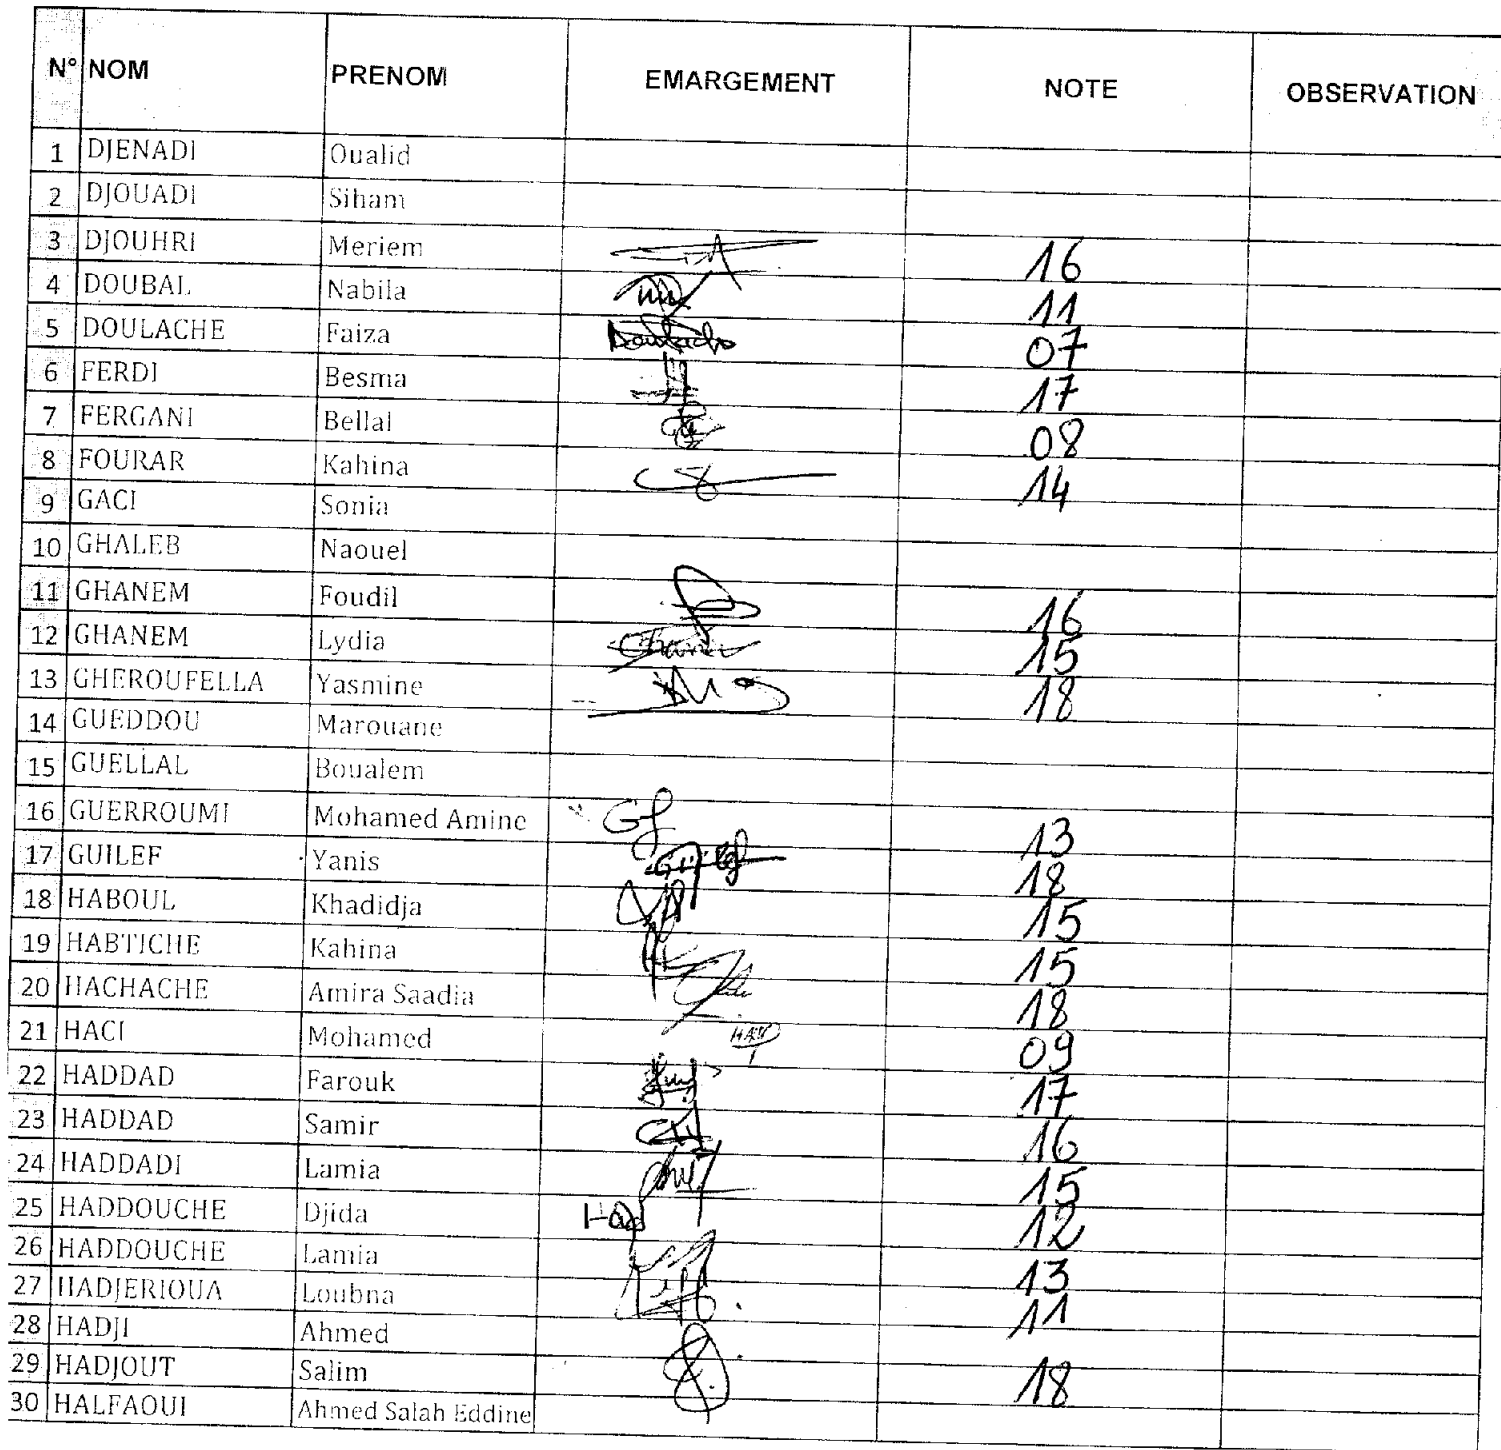 N° NOM PRENOM EMARGEMENT NOTE OBSERVATION
1 DJENADI Oualid
2 DJOUADI Siham
3 DJOUHRI Meriem 16
4 DOUBAL Nabila 11
5 DOULACHE Faiza 07
6 FERDI Besma 17
7 FERGANI Bellal 08
8 FOURAR Kahina 14
9 GACI Sonia
10 GHALEB Naouel
11 GHANEM Foudil 16
12 GHANEM Lydia 15
13 GHEROUFELLA Yasmine 18
14 GUEDDOU Marouane
15 GUELLAL Boualem
16 GUERROUMI Mohamed Amine 13
17 GUILEF Yanis 18
18 HABOUL Khadidja 15
19 HABTICHE Kahina 15
20 HACHACHE Amira Saadia 18
21 HACI Mohamed 09
22 HADDAD Farouk 17
23 HADDAD Samir 16
24 HADDADI Lamia 15
25 HADDOUCHE Djida 12
26 HADDOUCHE Lamia 13
27 HADJERIOUA Loubna 11
28 HADJI Ahmed
29 HADJOUT Salim 18
30 HALFAOUI Ahmed Salah Eddine